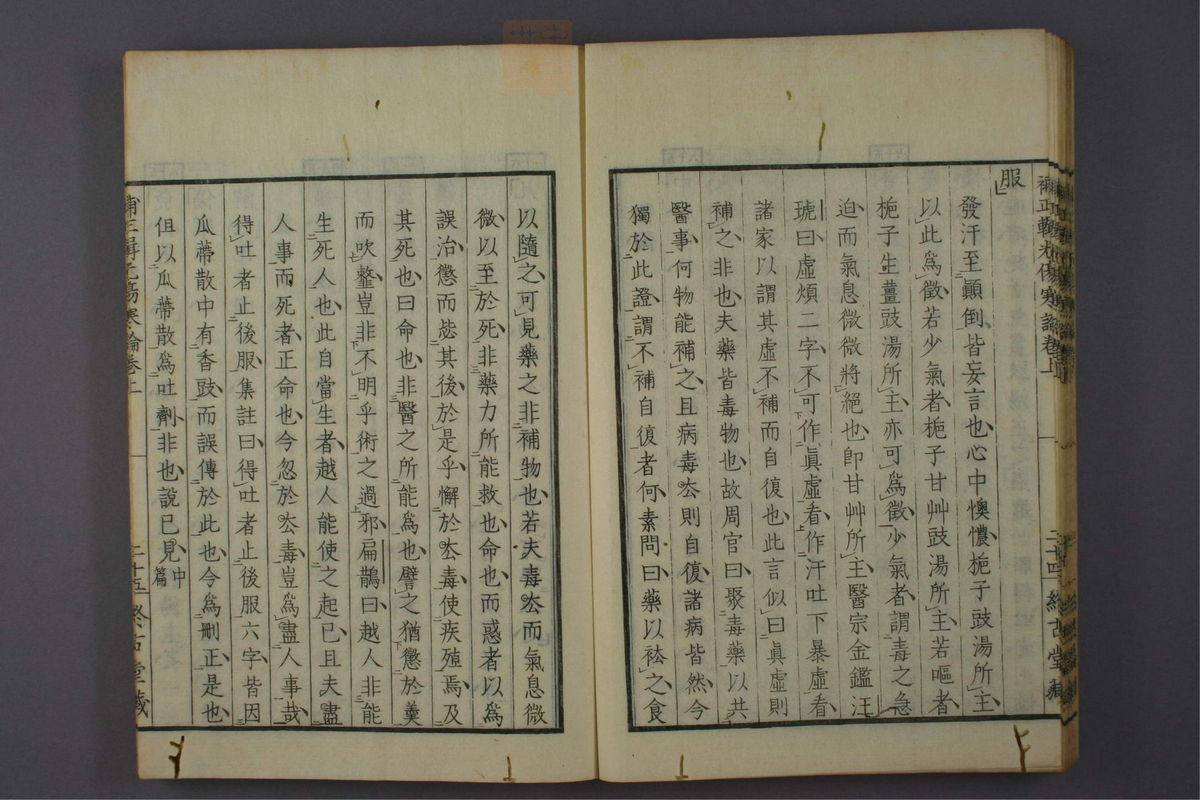 補正輯光傷寒論卷上
服
發汗至顚倒皆妄言也心中懊憹梔子豉湯所主
以此爲徵若少氣者梔子甘艸豉湯所主若嘔者
梔子生薑豉湯所主亦可爲徵少氣者謂毒之急
迫而氣息微微將絕也卽甘艸所主醫宗金鑑汪
琥曰虛煩二字不可作眞虛看作汗吐下暴虛看
諸家以謂其虛不補而自復也此言似曰眞虛則
補之非也夫藥皆毒物也故周官曰聚毒藥以共
醫事何物能補之且病毒厺則自復諸病皆然今
獨於此證謂不補自復者何素問曰藥以袪之食
以隨之可見藥之非補物也若夫毒厺而氣息微
微以至於死非藥力所能救也命也而惑者以爲
誤治懲而恣其後於是乎懈於厺毒使疾殖焉及
其死也曰命也非醫之所能爲也譬之猶懲於羹
而吹韲豈非不明乎術之過邪扁鵲曰越人非能
生死人也此自當生者越人能使之起已且夫盡
人事而死者正命也今忽於厺毒豈爲盡人事哉
得吐者止後服集註曰得吐者止後服六字皆因
瓜蔕散中有香豉而誤傳於此也今爲刪正是也
但以瓜蔕散爲吐劑非也說已見中篇
補正輯光傷寒論卷上 二十五 終古堂藏